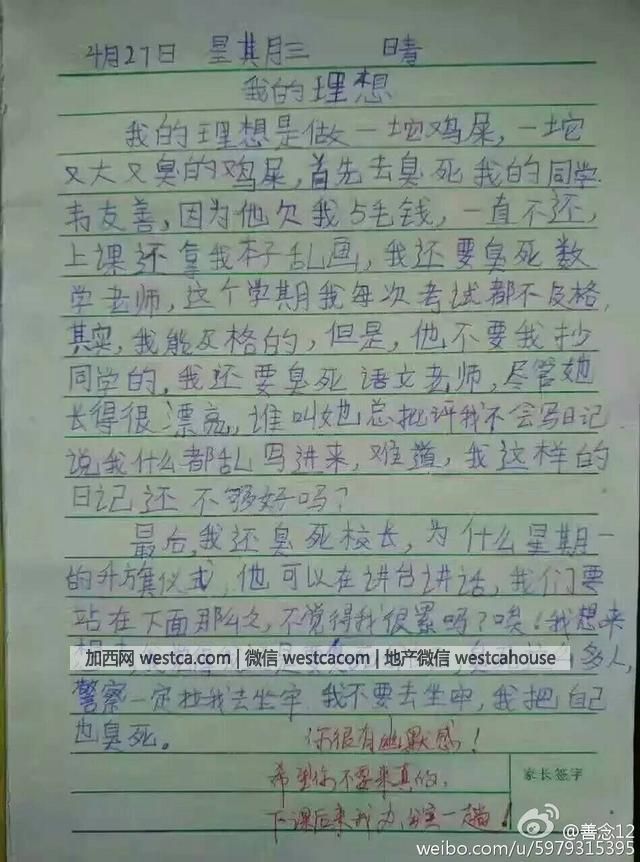 4月27日 星其月三 晴
我的理想
我的理想是做一坨鸡屎,一坨
又大又臭的鸡屎,首先去臭死我的同学
韦友善,因为他欠我5毛钱,一直不还,
上课还拿我本子乱画,我还要臭死数
学老师,这个学期我每次考试都不及格,
其实,我能及格的,但是,他不要我抄
同学的,我还要臭死语文老师,尽管她
长得很漂亮,谁叫她总批评我不会写日记
说我什么都乱写进来,难道,我这样的
日记还不够好吗?
最后,我还臭死校长,为什么星期一
的升旗仪式,他可以在讲台讲话,我们要
站在下面那么久,不觉得我很累吗?唉!我想来
加西网 westca.com | 微信 westcacom | 地产微信 westcahouse
多人,
警察一定拉我去坐牢 我不要去坐牢,我把自己
也臭死。
你很有幽默感!
希望你不要来真的,
下课后来我办公室一趟!
家长签字
@善念12
weibo.com/u/5979315395